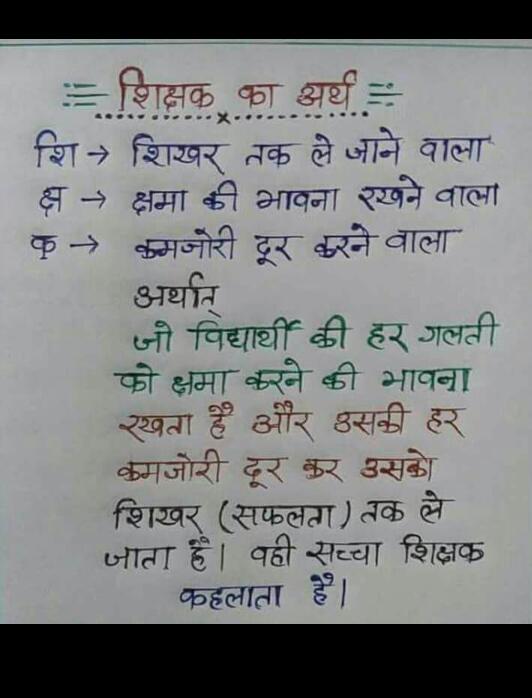 शिक्षक का अर्थ
शि → शिखर तक ले जाने वाला
क्ष → क्षमा की भावना रखने वाला
क → कमजोरी दूर करने वाला
अर्थात्
जो विद्यार्थी की हर गलती
को क्षमा करने की भावना
रखता है और उसकी हर
कमजोरी दूर कर उसको
शिखर (सफलता) तक ले
जाता है। वही सच्चा शिक्षक
कहलाता है।